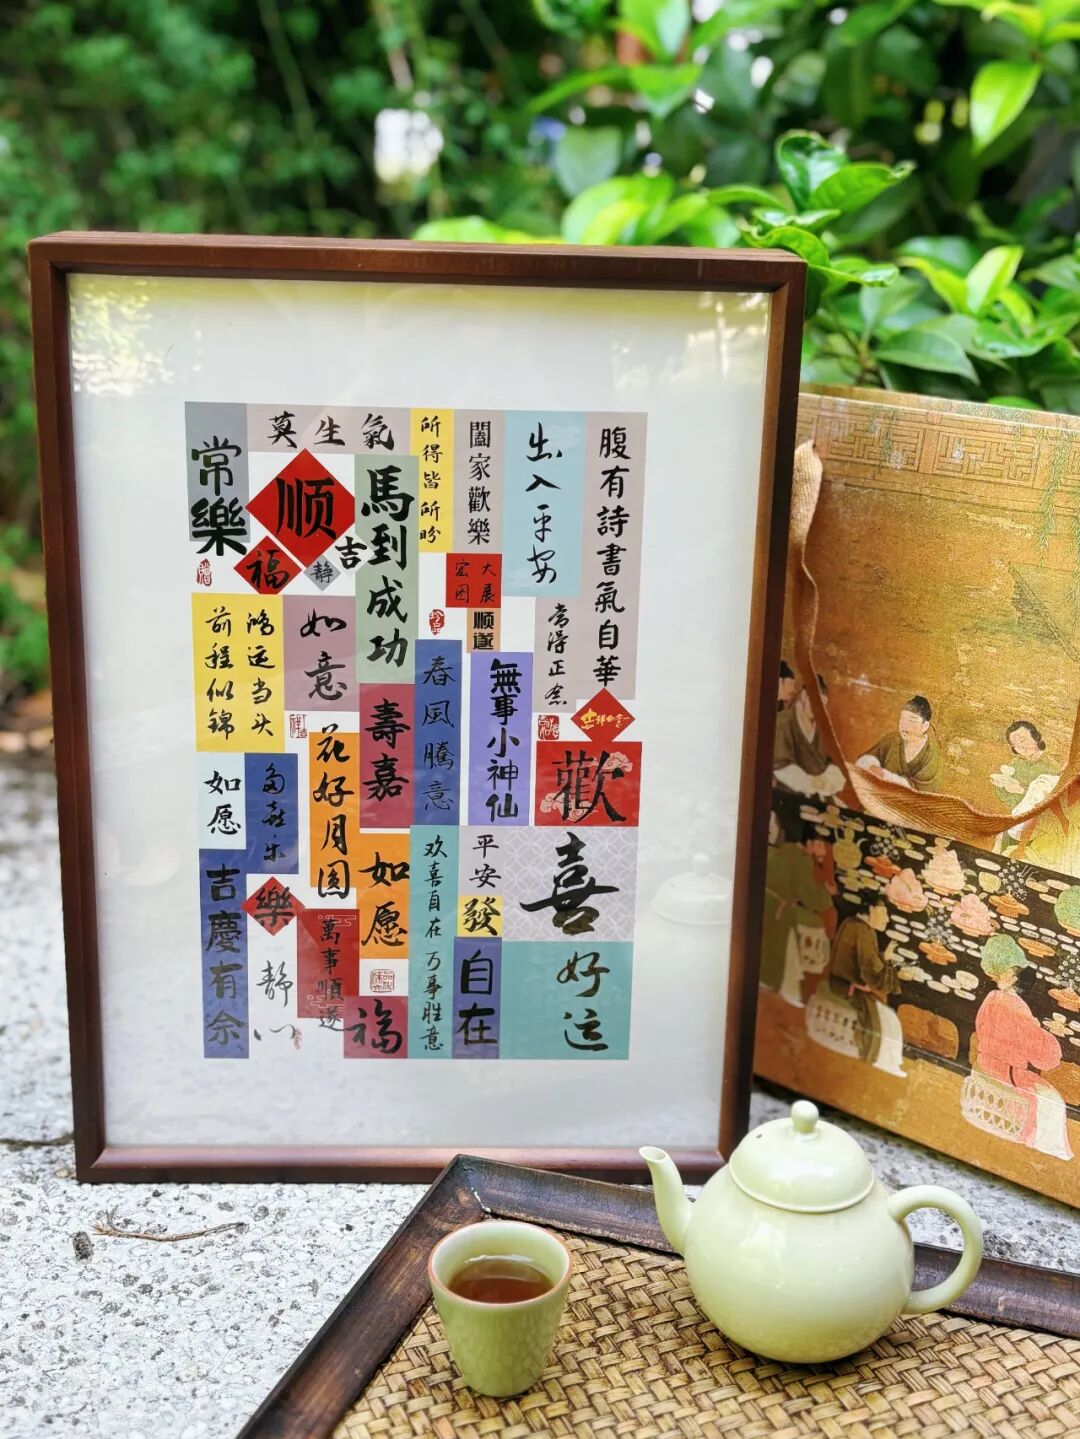 常樂
莫生氣
順
福
静
吉
馬到成功
所得皆所盼
闔家歡樂
出入平安
腹有詩書氣自華
大展宏图
顺遂
常得正念
鸿运当头
前程似锦
如意
壽嘉
春风騰意
無事小神仙
歡
喜
如愿
多喜乐
花好月圆
吉慶有余
樂
静心
萬事順遂
如愿
福
欢喜自在万事胜意
平安
發
自在
好运